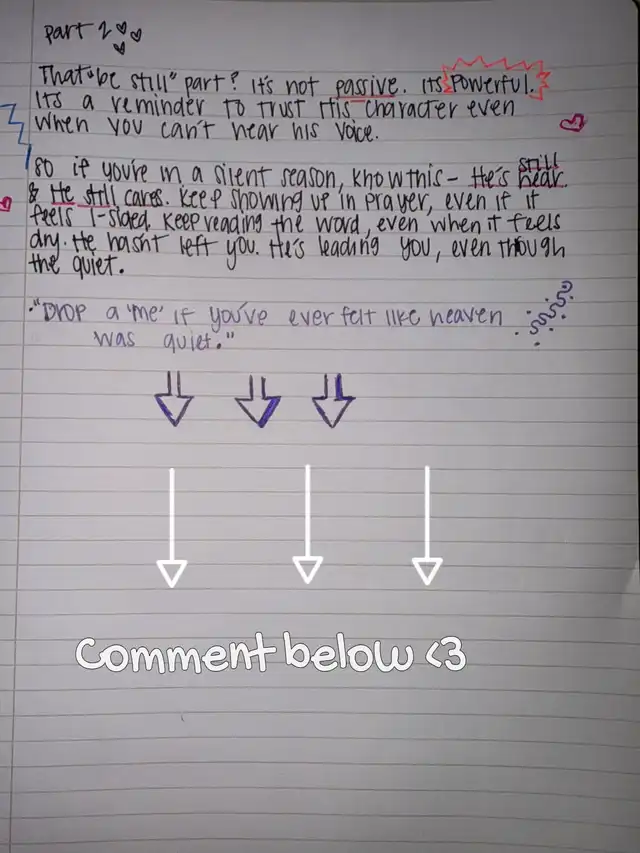 Part 2
That "be still" part? It's not passive. Its Powerful.
Its a reminder to trust His character even
when you can't hear his voice.
So if you're in a silent season, know this - He's still near.
& He still cares. Keep showing up in prayer, even if it
feels 1-sided. Keep reading the word, even when it feels
dry. He hasn't left you. He's leading you, even though
the quiet.
"Drop a 'me' if you've ever felt like heaven
was quiet."
Comment below <3